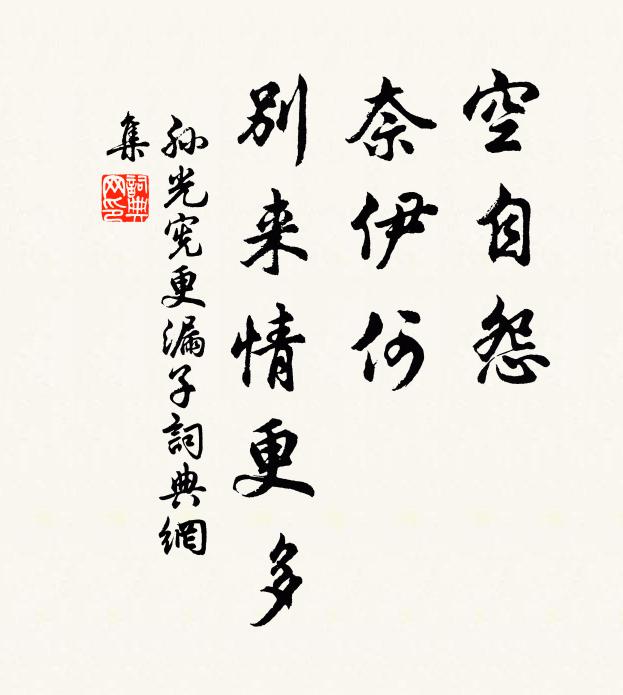 空自怨
奈伊何
别来情更多
孙光宪更漏子詞典網
集
詞典
网印